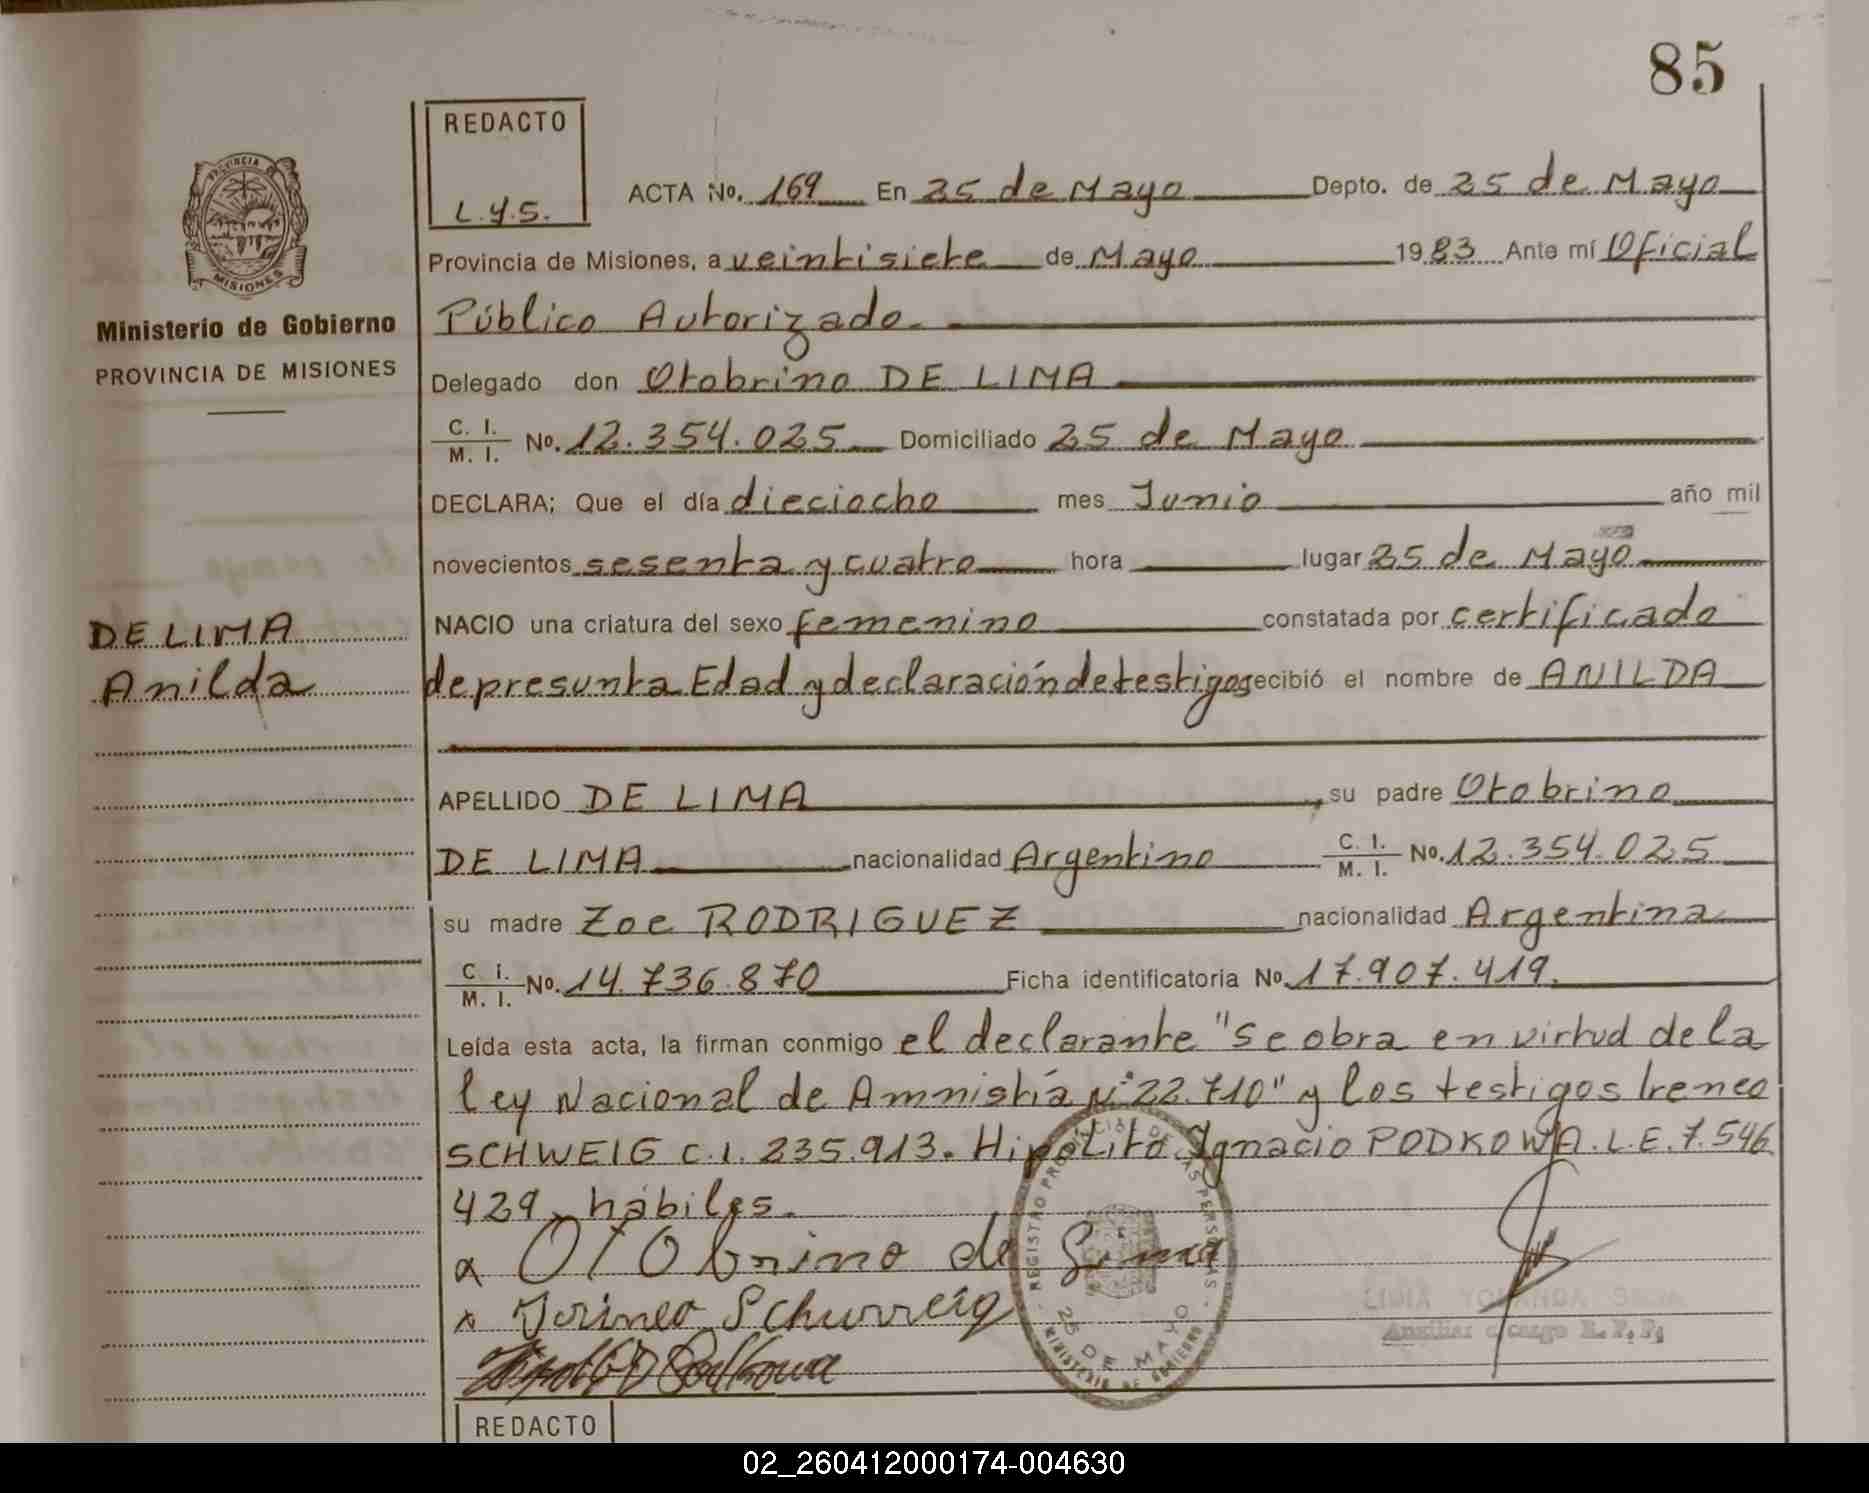 85
REDACTO
L.Y.S.
ACTA No. 169 En 25 de Mayo Depto. de 25 de Mayo
Provincia de Misiones, a veintisiete de Mayo 1983 Ante mí Oficial
Público Autorizado
Delegado don Otobrino DE LIMA
C. I. M. I. No. 12.354.025 Domiciliado 25 de Mayo
DECLARA; Que el día dieciocho mes Junio año mil
novecientos sesenta y cuatro hora lugar 25 de Mayo
NACIO una criatura del sexo femenino constatada por certificado
de presunta Edad y declaración de testigos recibió el nombre de ANILDA
APELLIDO DE LIMA, su padre Otobrino
DE LIMA nacionalidad Argentino C. I. M. I. No. 12.354.025
su madre Zoe RODRIGUEZ nacionalidad Argentina
C. i. M. I. No. 14.736.870 Ficha identificatoria No. 17.907.419.
Leída esta acta, la firman conmigo el declarante "Se obra en virtud de la
Ley Nacional de Amnistía N° 22.710" y los testigos Ireneo
SCHWEIG C.I. 235.913. Hipólito Ignacio PODKOWA. L.E. 7.546
429, hábiles.
Otobrino de Lima
PROVINCIA DE MISIONES
Ministerio de Gobierno
PROVINCIA DE MISIONES
DE LIMA
Anilda
REGISTRO PROVINCIAL DE LAS PERSONAS
25 DE MAYO
MINISTERIO DE GOBIERNO
Auxiliar a cargo R. P. P.
REDACTO
02_260412000174-004630